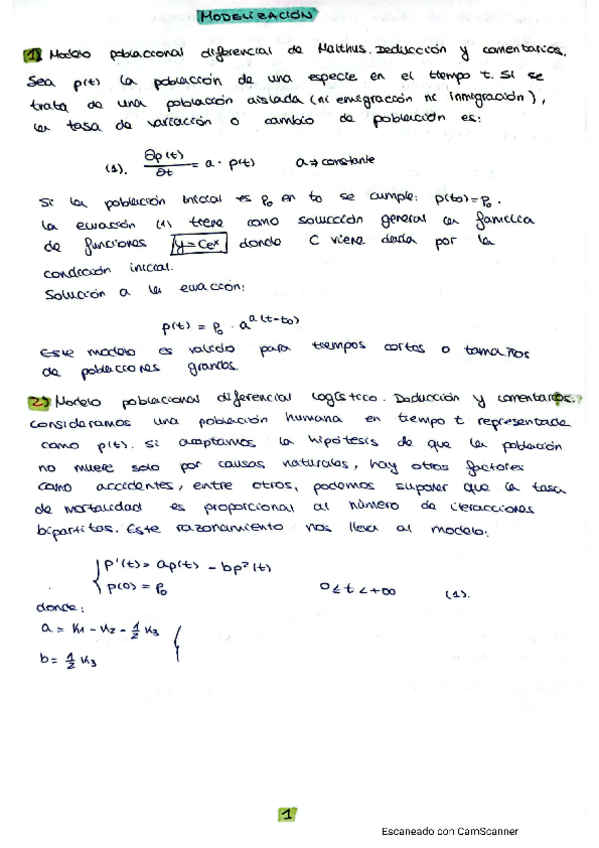 MODELIZACIÓN
1) Modelo poblacional diferencial de Malthus. Deducción y comentarios.
Sea p(t) la población de una especie en el tiempo t. Si se
trata de una población aislada (ni emigración ni inmigración),
la tasa de variación o cambio de población es:
(1). ∂p(t)/∂t = a · p(t) a → constante
Si la población inicial es p₀ en t₀ se cumple: p(t₀) = p₀.
La ecuación (1) tiene como solución general la familia
de funciones y=Ceˣ donde C viene dada por la
condición inicial.
Solución a la ecuación:
p(t) = p₀ · a^a(t-t₀)
Este modelo es valido para tiempos cortos o tamaños
de poblaciones grandes.
2) Modelo poblacional diferencial logístico. Deducción y comentarios.
Consideramos una población humana en tiempo t representada
como p(t). Si aceptamos la hipótesis de que la población
no muere solo por causas naturales, hay otros factores
como accidentes, entre otros, podemos suponer que la tasa
de mortalidad es proporcional al número de iteracciones
bipartitas. Este razonamiento nos lleva al modelo:
p'(t) = ap(t) - bp²(t)
p(0) = p₀ 0 ≤ t < +∞ (1).
donde:
a = k₁ - k₂ - 1/2 k₃
b = 1/2 k₃
1
Escaneado con CamScanner